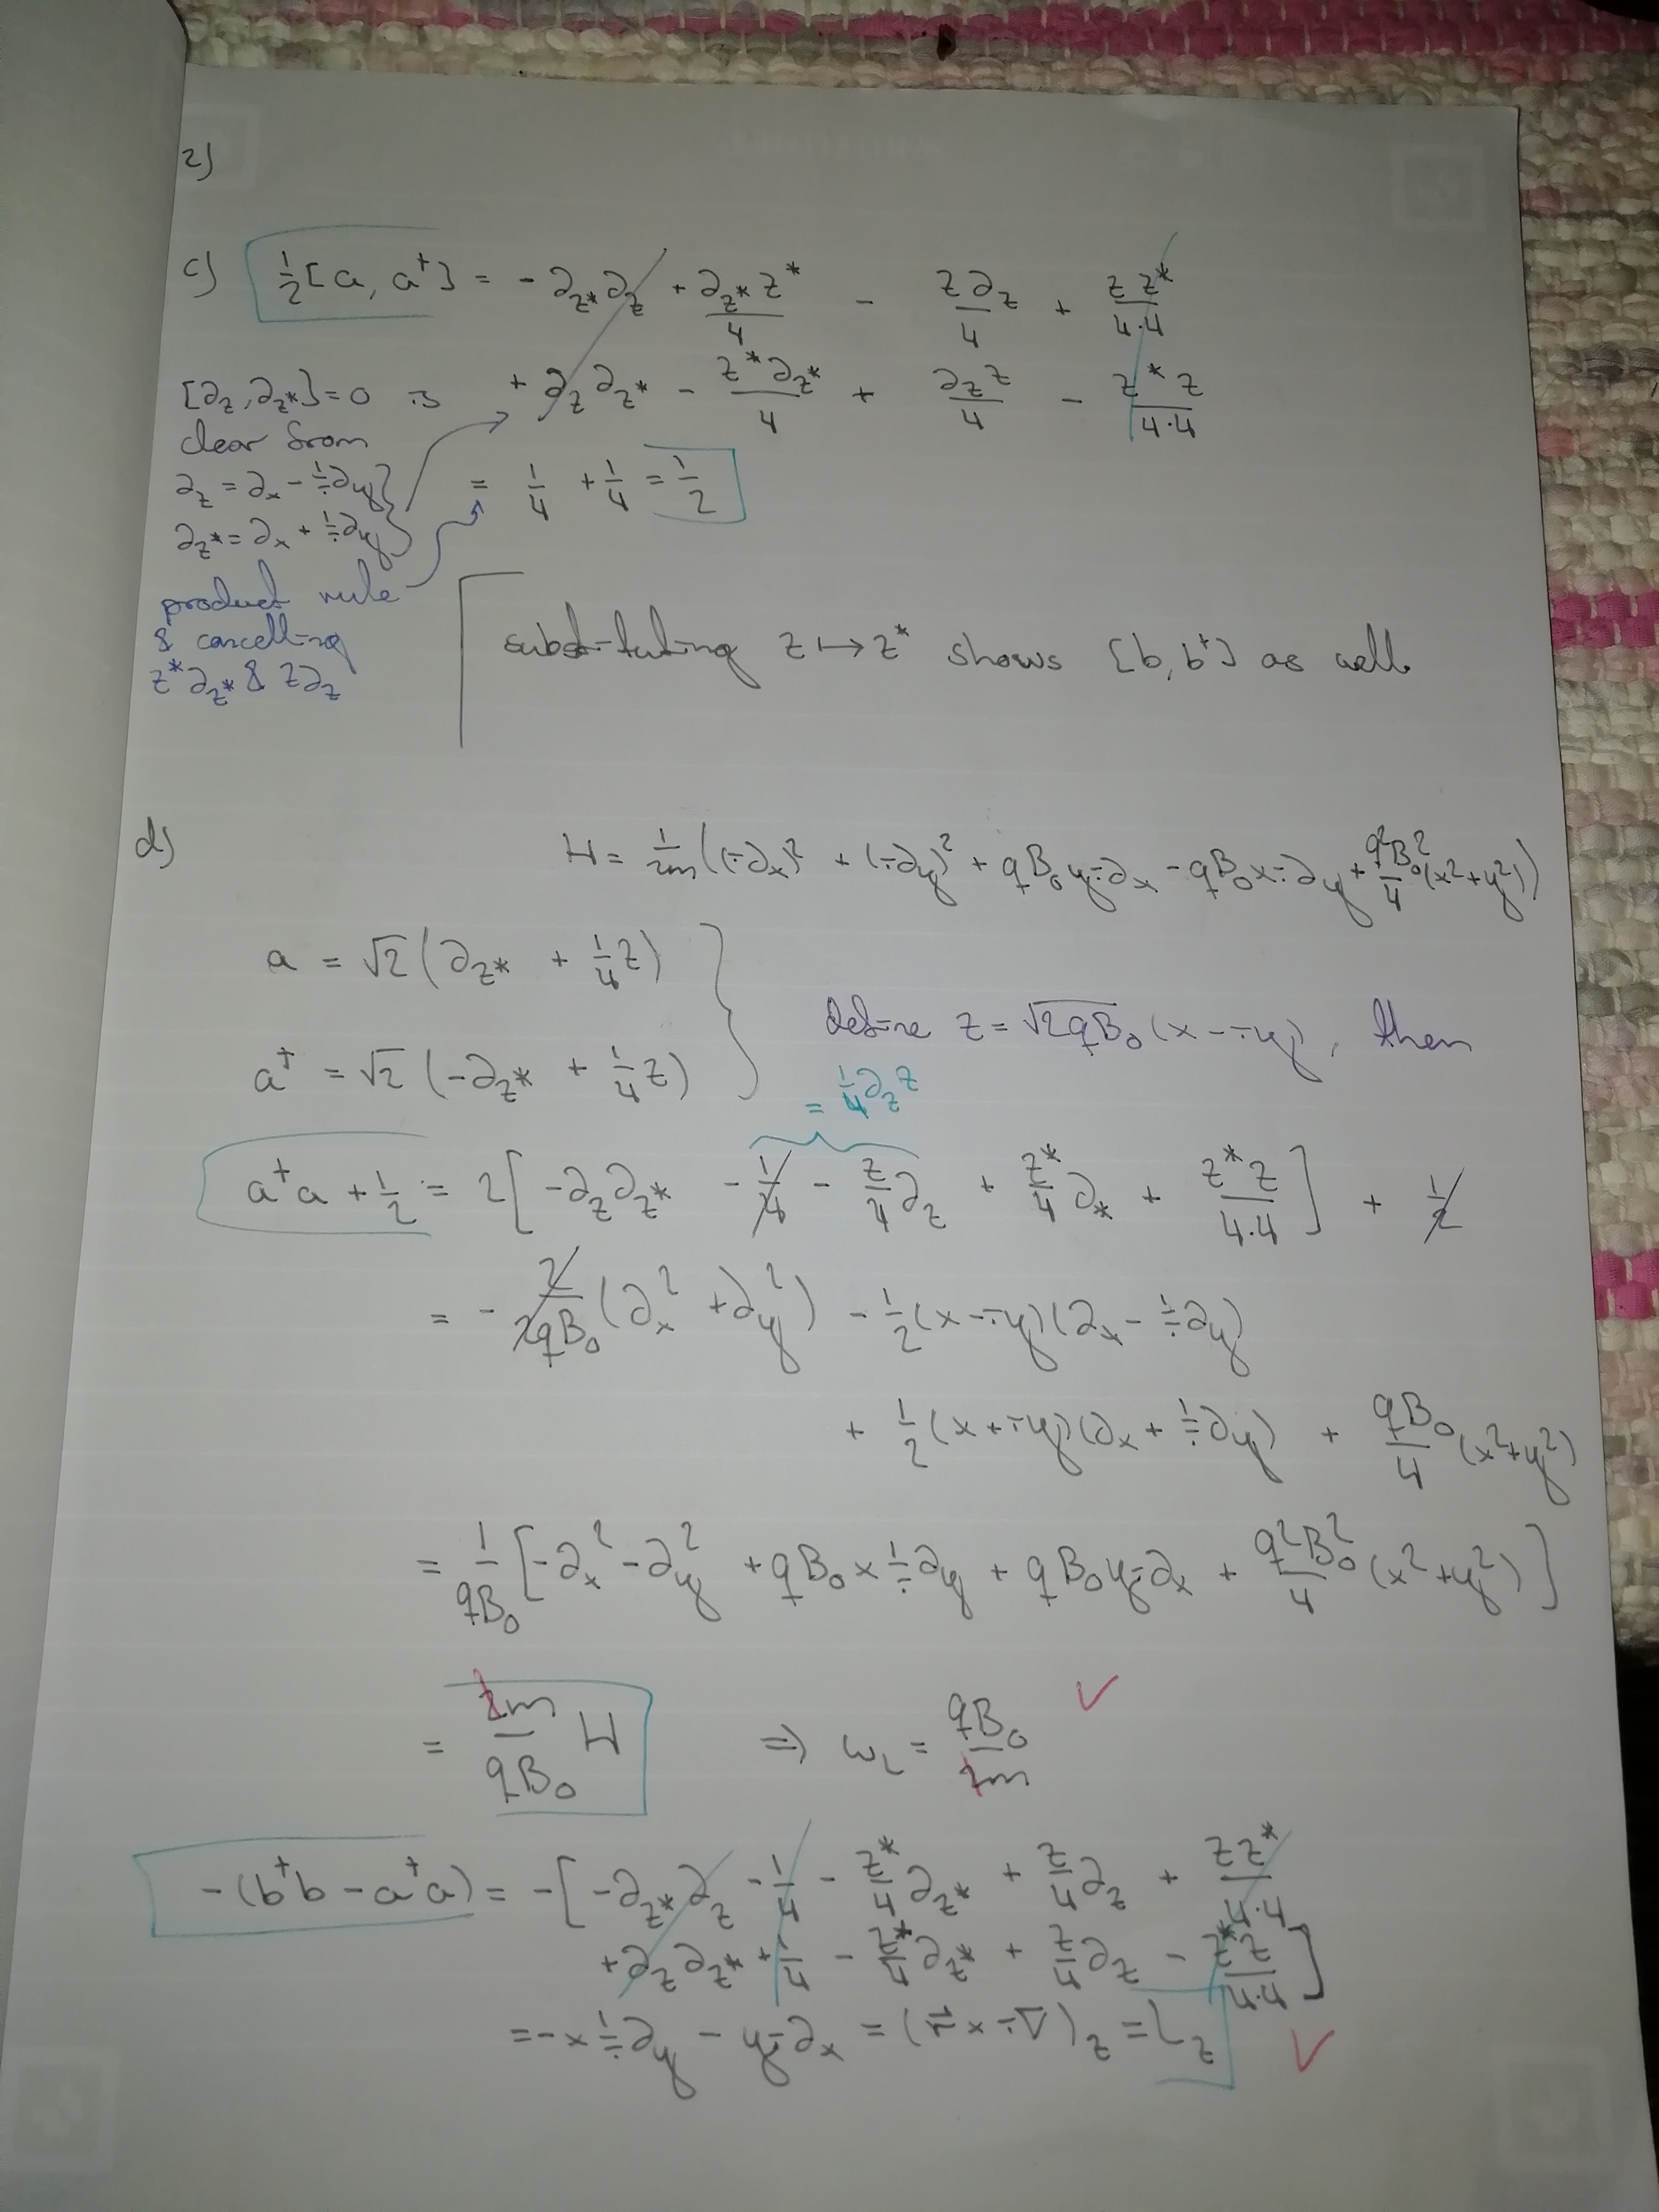 2)
c) ½[a, a†] = - ∂z*∂z + ∂z* z*/4 - z∂z/4 + z z*/4·4
[∂z, ∂z*] = 0 is + ∂z ∂z* - z*∂z*/4 + ∂z z/4 - z* z/4·4
clear from
∂z = ∂x - 1/i ∂y
= 1/4 + 1/4 = 1/2
∂z* = ∂x + 1/i ∂y
product rule
& cancelling
z*∂z* & z∂z
substituting z ↦ z* shows [b, b†] as well
d) H = 1/2m ((i∂x)² + (i∂y)² + qB₀yi∂x - qB₀xi∂y + q²B₀²/4 (x²+y²))
a = √2 (∂z* + ¼z)
define z = √2qB₀ (x - iy), then
a† = √2 (-∂z* + ¼z)
= ¼∂z z
a†a + ½ = 2[-∂z∂z* - 1/4 - z/4 ∂z + z*/4 ∂* + z*z/4·4] + 1/2
= - 2/2qB₀ (∂x² + ∂y²) - ½(x - iy)(∂x - 1/i ∂y)
+ ½(x + iy)(∂x + 1/i ∂y) + qB₀/4 (x²+y²)
= 1/qB₀ [-∂x² - ∂y² + qB₀ x 1/i ∂y + qB₀yi∂x + q²B₀²/4 (x²+y²)]
= 2m/qB₀ H ⇒ ωL = qB₀/2m ✓
-(b†b - a†a) = -[-∂z*∂z - 1/4 - z*/4 ∂z* + z/4 ∂z + zz*/4·4
+∂z∂z* + 1/4 - z*/4 ∂z* + z/4 ∂z - z*z/4·4]
= -x 1/i ∂y - yi∂x = (r⃗ × i∇)z = Lz ✓